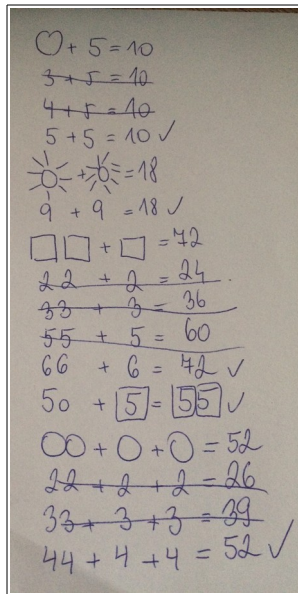 ♡ + 5 = 10
3 + 5 = 10
4 + 5 = 10
5 + 5 = 10 ✓
☼ + ☼ = 18
9 + 9 = 18 ✓
□□ + □ = 72
22 + 2 = 24
33 + 3 = 36
55 + 5 = 60
66 + 6 = 72 ✓
50 + 5 = 55 ✓
○○ + ○ + ○ = 52
22 + 2 + 2 = 26
33 + 3 + 3 = 39
44 + 4 + 4 = 52 ✓